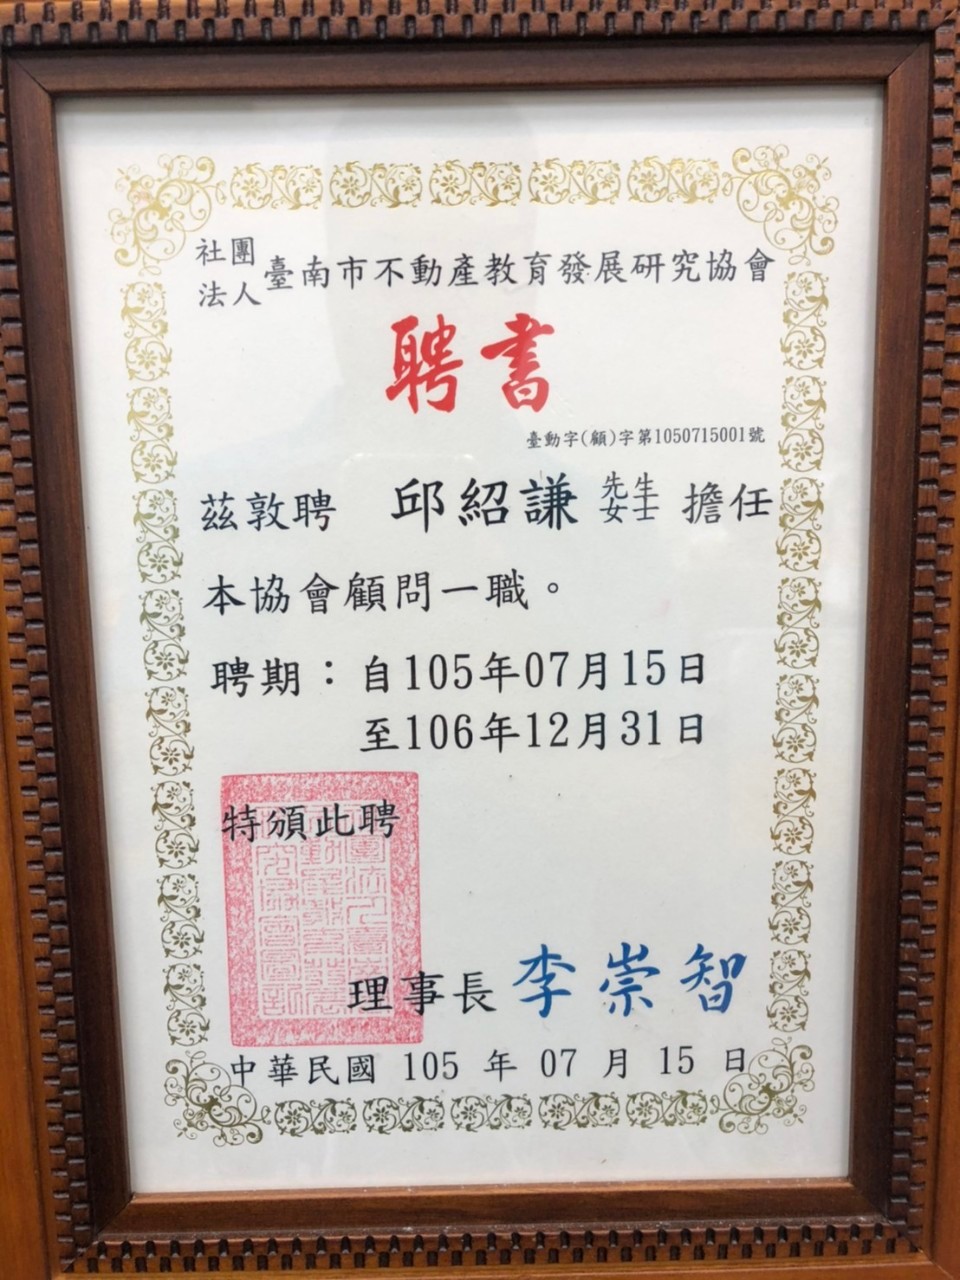 社團法人臺南市不動產教育發展研究協會
聘書
臺動字(顧)字第1050715001號
茲敦聘 邱紹謙 先生女士 擔任
本協會顧問一職。
聘期：自105年07月15日
至106年12月31日
特頒此聘
理事長 李崇智
中華民國 105 年 07 月 15 日